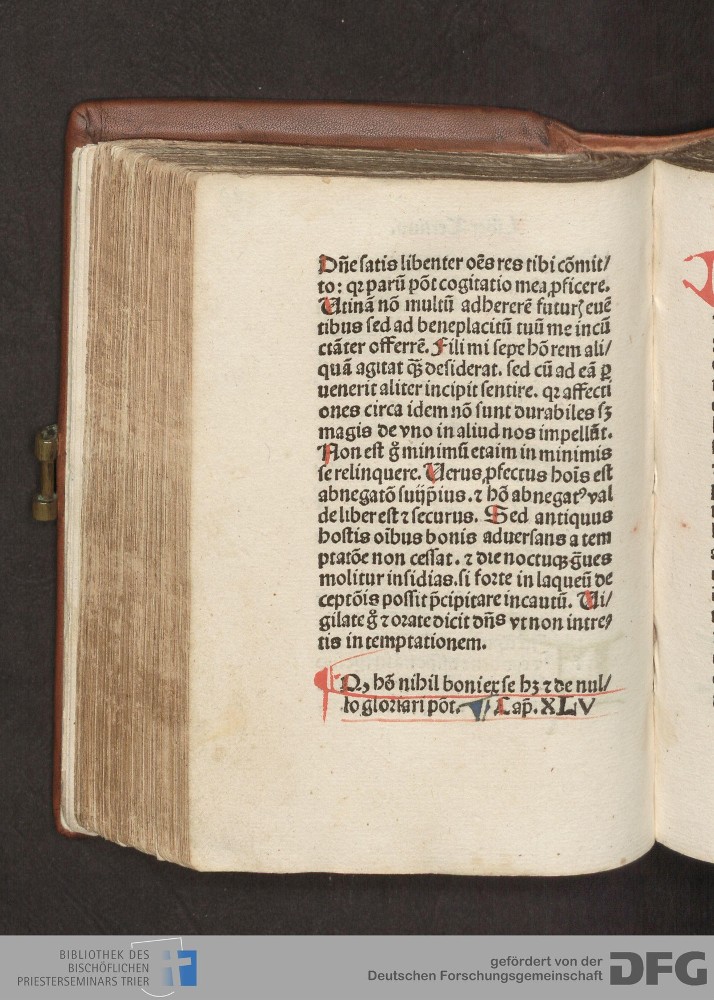 Dn̄e satis libenter oēs res tibi cōmit/
to: qꝛ parū pōt cogitatio mea ꝓficere.
Utinā nō multū adhererē futurꝝ euē
tibus sed ad beneplacitū tuū me incū
ctāter offerrē. Fili mi sepe hō rem ali/
quā agitat qȝ̄ desiderat. sed cū ad eā ꝑ
uenerit aliter incipit sentire. qꝛ affecti
ones circa idem nō sunt durabiles sȝ
magis de vno in aliud nos impellūt.
Non est g̊ minimū etaim in minimis
se relinquere. Uerus ꝓfectus hoīs est
abnegatō suijp̄ius. ⁊ hō abnegatꝰ val
de liber est ⁊ securus. Sed antiquus
hostis oībus bonis aduersans a tem
ptatōe non cessat. ⁊ die noctuqȝ ḡues
molitur insidias. si forte in laqueū de
ceptōis possit p̄cipitare incautū. Ui/
gilate g̊ ⁊ orate dicit dn̄s vt non intre/
tis in temptationem.
¶ Qꝫ hō nihil boni ex se hȝ ⁊ de nul/
lo gloriari pōt. Cap̄. XLV
BIBLIOTHEK DES
BISCHÖFLICHEN
PRIESTERSEMINARS TRIER
gefördert von der
Deutschen Forschungsgemeinschaft
DFG